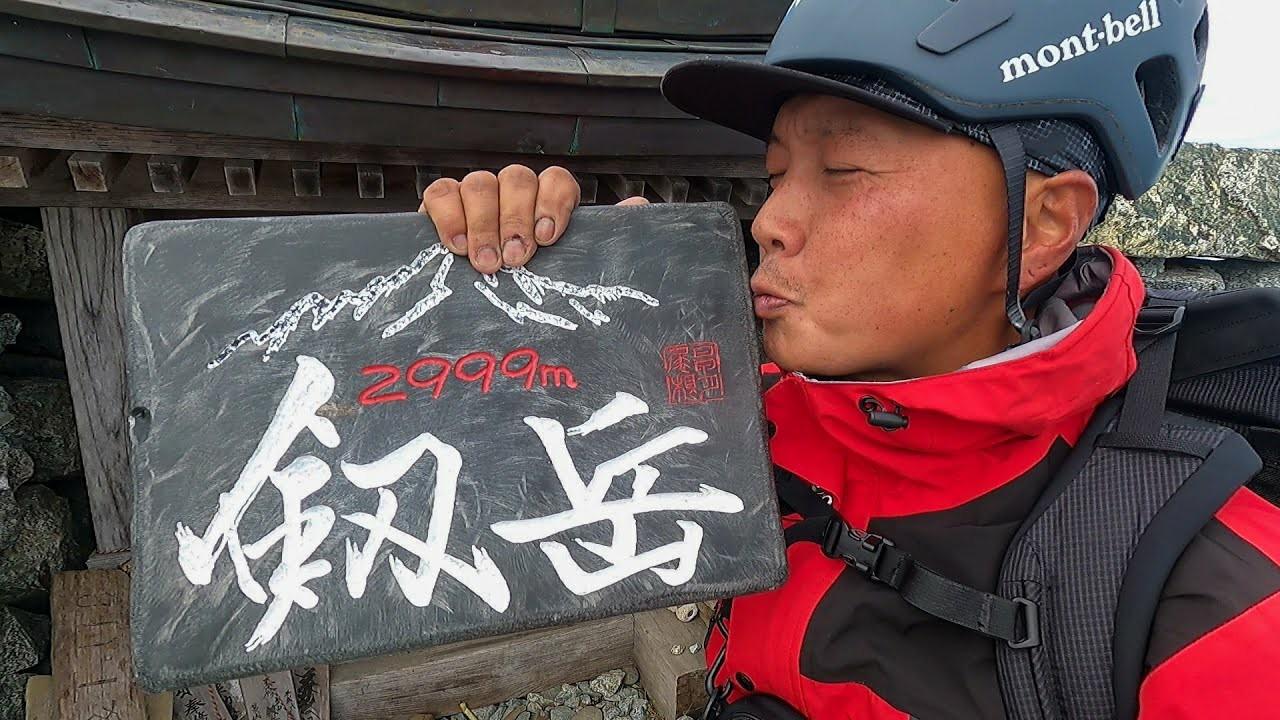 mont-bell
2999m
劔岳